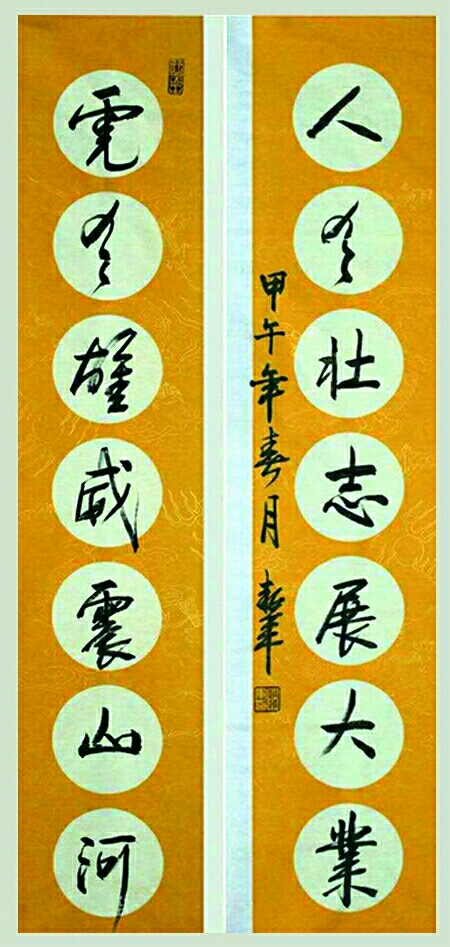 人有壮志展大業
甲午年春月
虎有雄威震山河